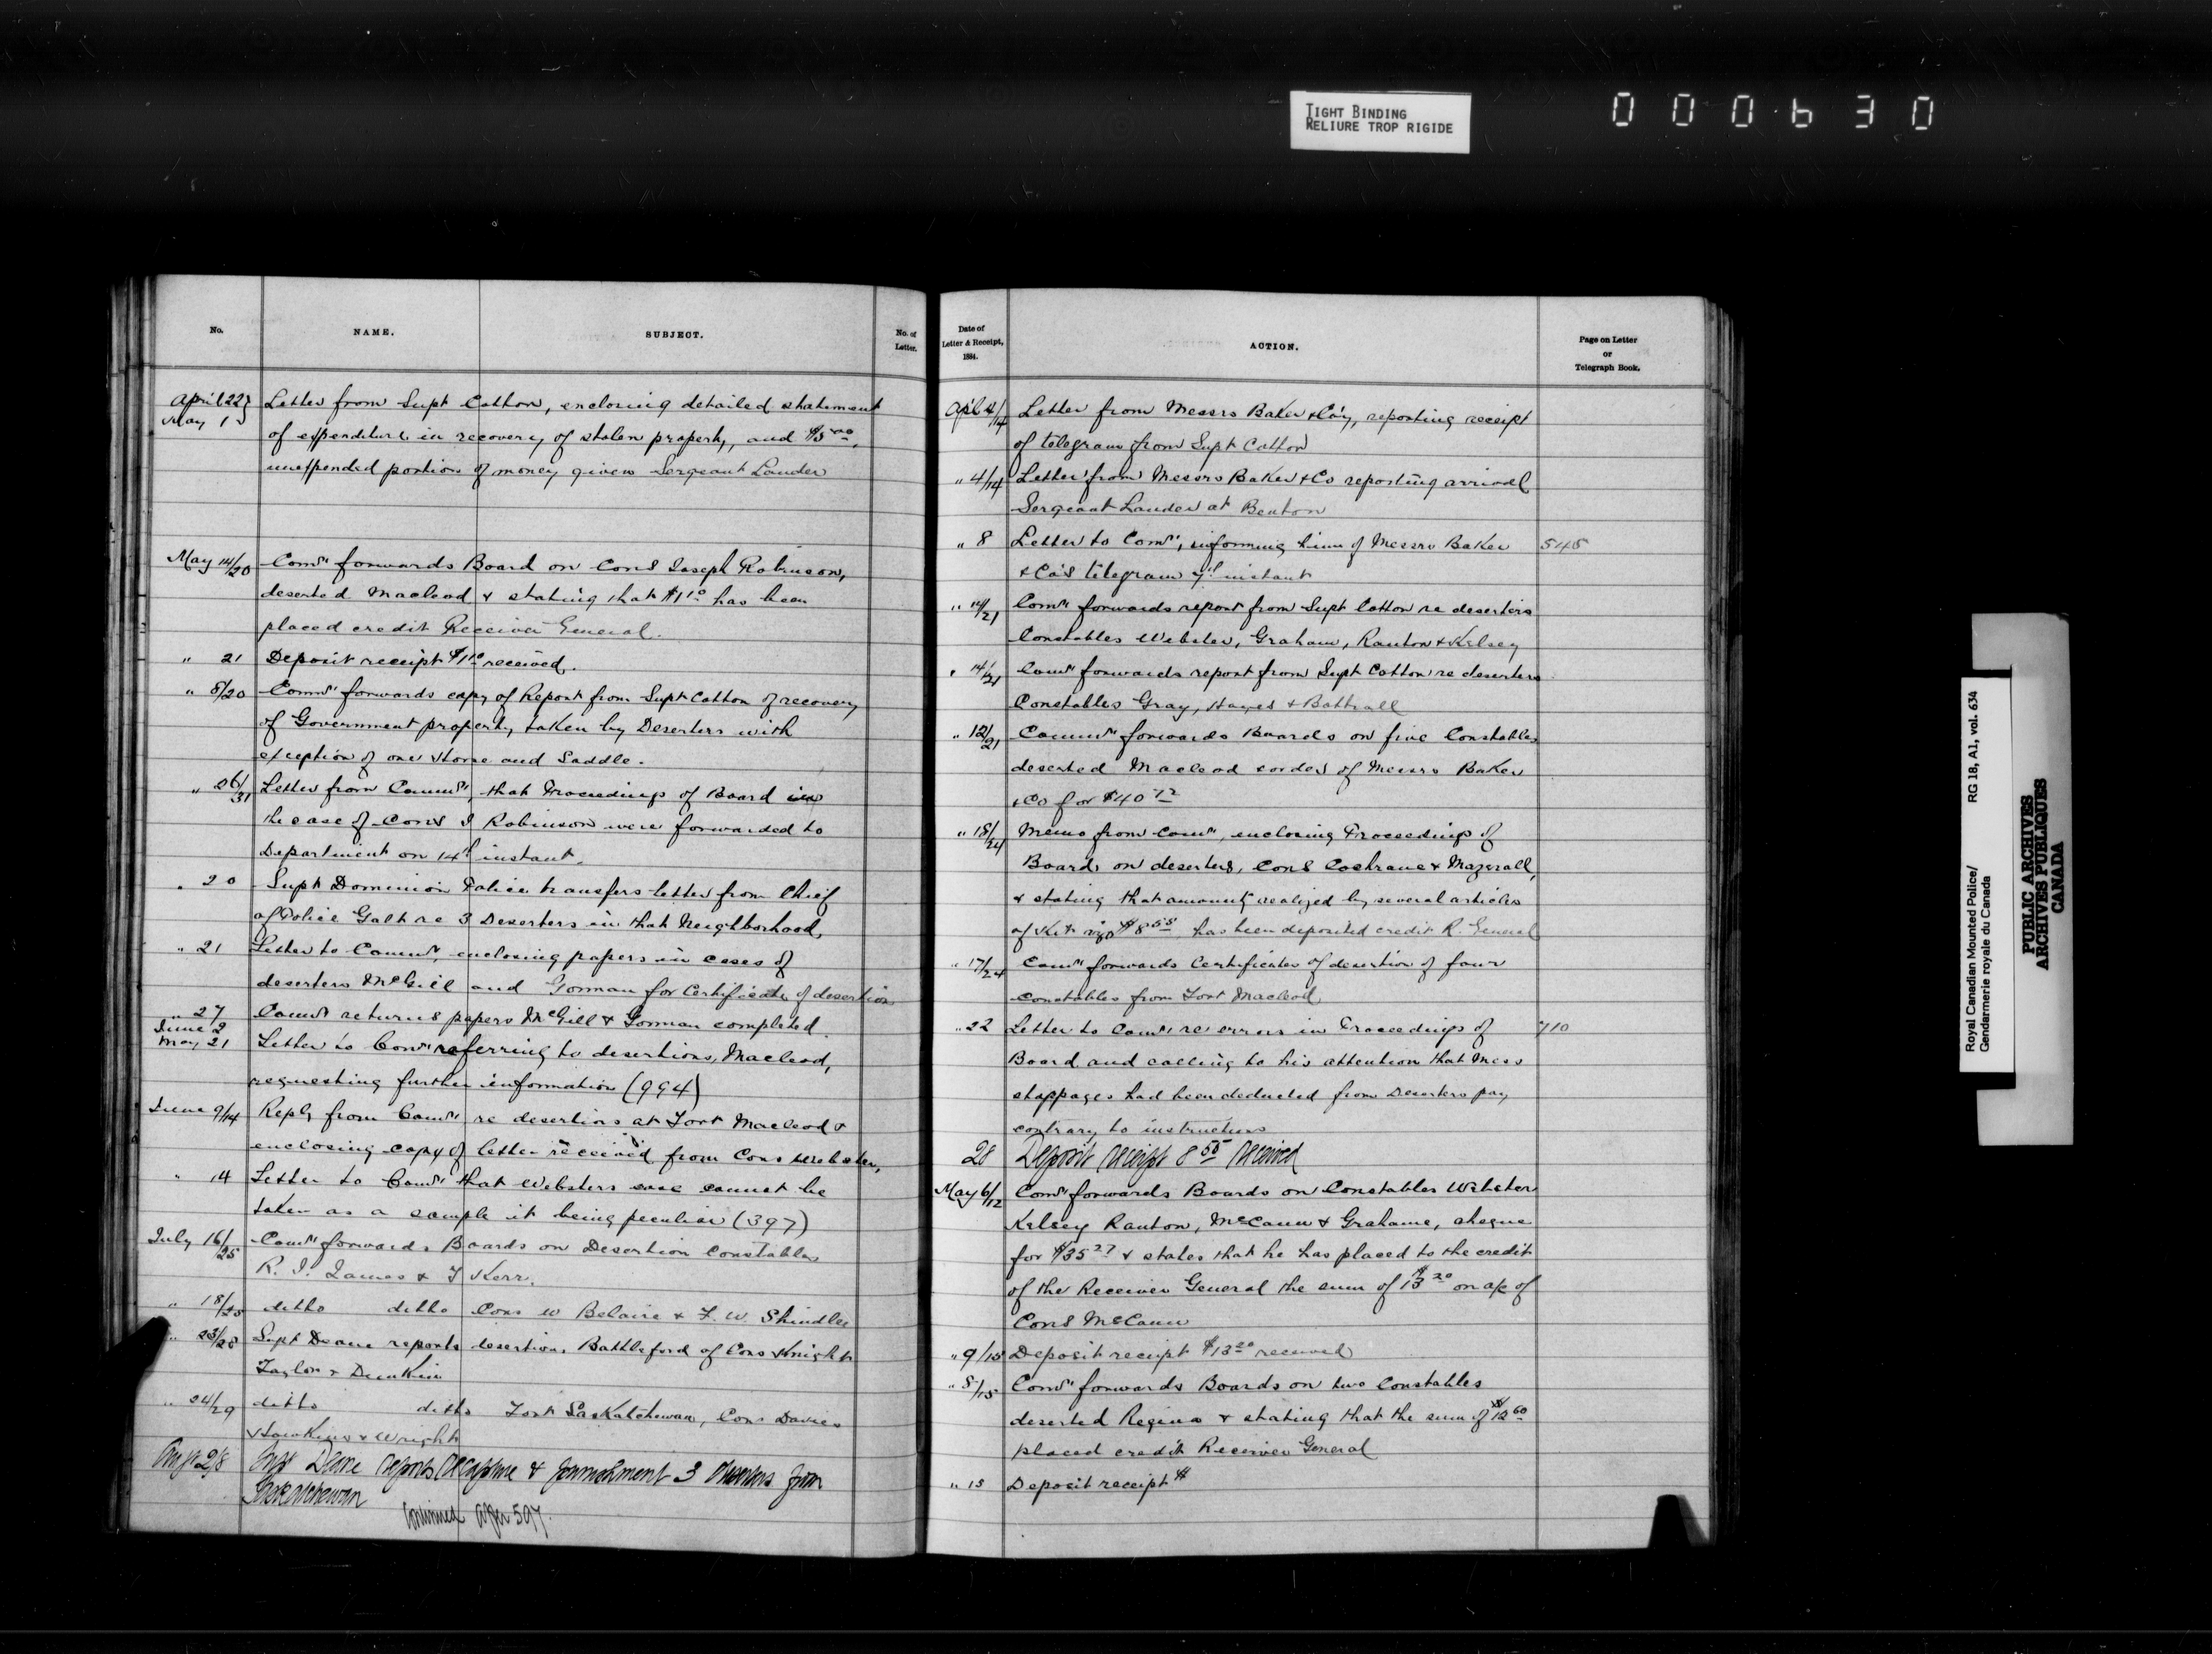 TIGHT BINDING
RELIURE TROP RIGIDE
000630
No. NAME. SUBJECT. No. of Letter.
April 22
May 1
Letter from Supt Cotton, enclosing detailed statement
of expenditure in recovery of stolen property, and $5.00,
unexpended portion of money given Sergeant Lauder
May 14/20 Comr forwards Board on Cons Joseph Robinson,
deserted Macleod & stating that $1 10 has been
placed credit Receiver General.
" 21 Deposit receipt $1 10 received.
" 8/20 Comr forwards copy of Report from Supt Cotton of recovery
of Government property, taken by Deserters with
exception of one Horse and Saddle.
" 26/31 Letter from Comr, that Proceedings of Board in
the case of Cons J Robinson were forwarded to
Department on 14th instant.
" 20 Supt Dominion Police transfers letter from Chief
of Police Galt re 3 Deserters in that Neighborhood,
" 21 Letter to Comr, enclosing papers in cases of
deserters McGill and Gorman for Certificate of desertion
" 27
June 2
Comr returns papers McGill & Gorman completed
May 21 Letter to Comr referring to desertions, Macleod,
requesting further information (994)
June 9/14 Reply from Comr re desertions at Fort Macleod &
enclosing copy of letter received from Cons Webster,
" 14 Letter to Comr that Websters case cannot be
taken as a sample it being peculiar (397)
July 16/25 Comr forwards Boards on Desertion Constables
R. J. James & J Kerr.
" 18/25 ditto ditto Cons W Belaire & F. W. Shindler
" 23/28 Supt Deane reports desertions Battleford of Cons Knight
Taylor & Dunkin
" 24/29 ditto ditto Fort Saskatchewan, Cons Davies
Hawkins & Wright
Augt 2/8 Supt Deane reports recapture & punishment 3 Deserters from
Saskatchewan
Continued after 597.
Date of Letter & Receipt, 1884. ACTION. Page on Letter or Telegraph Book.
Apl 4/14 Letter from Messrs Baker & Co'y, reporting receipt
of telegram from Supt Cotton
" 4/14 Letter from Messrs Baker & Co reporting arrival
Sergeant Lauder at Benton
" 8 Letter to Comr, informing him of Messrs Baker 545
& Co's telegram 7th instant
" 14/21 Comr forwards report from Supt Cotton re deserters
Constables Webster, Graham, Ranton & Kelsey
" 14/21 Comr forwards report from Supt Cotton re deserters
Constables Gray, Hayes & Bottrall
" 12/21 Comr forwards Boards on five Constables
deserted Macleod & order of Messrs Baker
& Co for $40 72
" 18/24 Memo from Comr, enclosing Proceedings of
Board on deserters, Cons Cochrane & Mazerall,
& stating that amount realized by several articles
of Kit viz $8 55 has been deposited credit R. General
" 17/24 Comr forwards Certificates of desertion of four
constables from Fort Macleod
" 22 Letter to Comr re errors in Proceedings of 710
Board and calling to his attention that Mess
stoppages had been deducted from Deserters pay
contrary to instructions
28 Deposit receipt 8 55 received
May 6/12 Comr forwards Boards on Constables Webster
Kelsey Ranton, McCann & Grahame, cheque
for $35 27 & states that he has placed to the credit
of the Receiver General the sum of $13 20 on a/c of
Cons McCann
" 9/15 Deposit receipt $13 20 received
" 8/15 Comr forwards Boards on two Constables
deserted Regina & stating that the sum of $12 60
placed credit Receiver General
" 15 Deposit receipt $
Royal Canadian Mounted Police/ RG 18, A1, vol. 634
Gendarmerie royale du Canada
PUBLIC ARCHIVES
ARCHIVES PUBLIQUES
CANADA